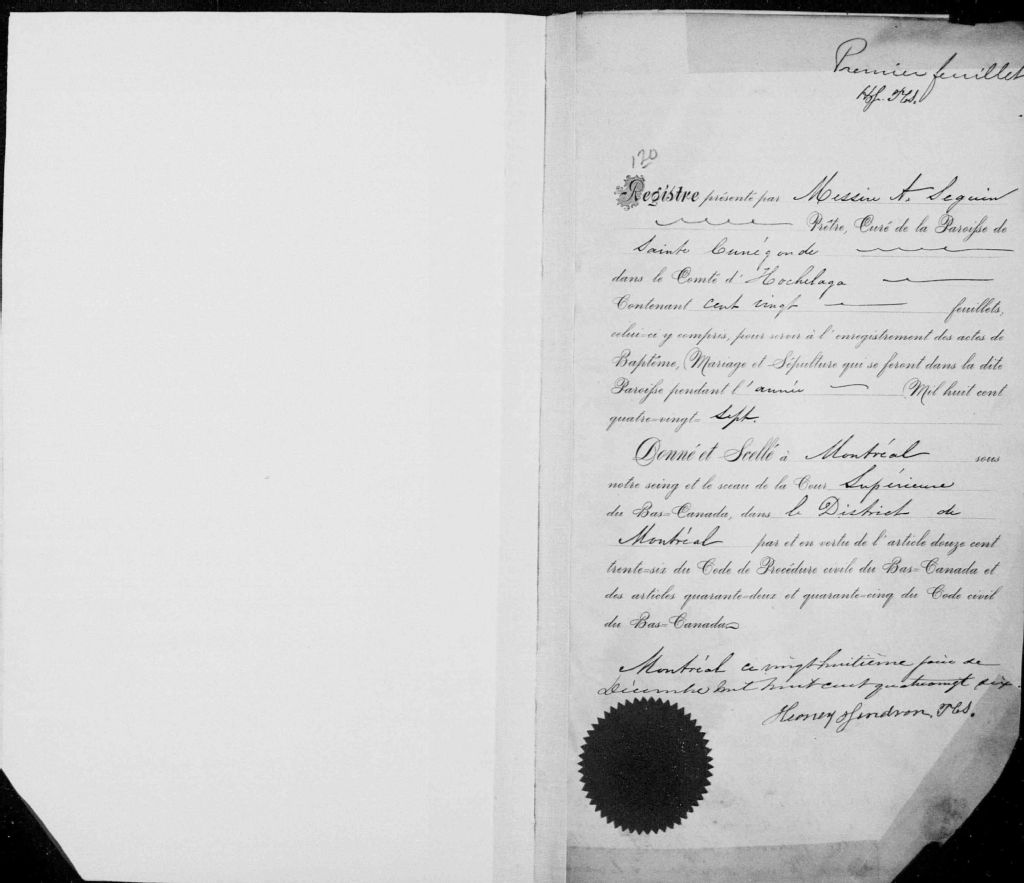 Premier feuillet
120
Registre présenté par Messire A. Seguin
Prêtre, Curé de la Paroisse de
Sainte Cunégonde
dans le Comté d'Hochelaga
Contenant cent vingt feuillets,
celui-ci y compris, pour servir à l'enregistrement des actes de
Baptême, Mariage et Sépulture qui se feront dans la dite
Paroisse pendant l'année Mil huit cent
quatre-vingt-sept.
Donné et Scellé à Montréal sous
notre seing et le sceau de la Cour Supérieure
du Bas-Canada, dans le District de
Montréal par et en vertu de l'article douze cent
trente-six du Code de Procédure civile du Bas-Canada et
des articles quarante-deux et quarante-cinq du Code civil
du Bas-Canada
Montréal ce vingthuitième jour de
Décembre huit cent quatrevingt six.